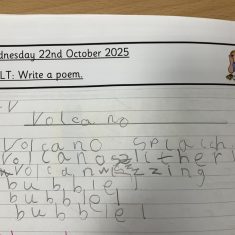 dnesday 22nd October 2025
LT: Write a poem.
Volcano
Volcano splach
Volcano slither
Volcan zzing
bubble
bubble
bubble